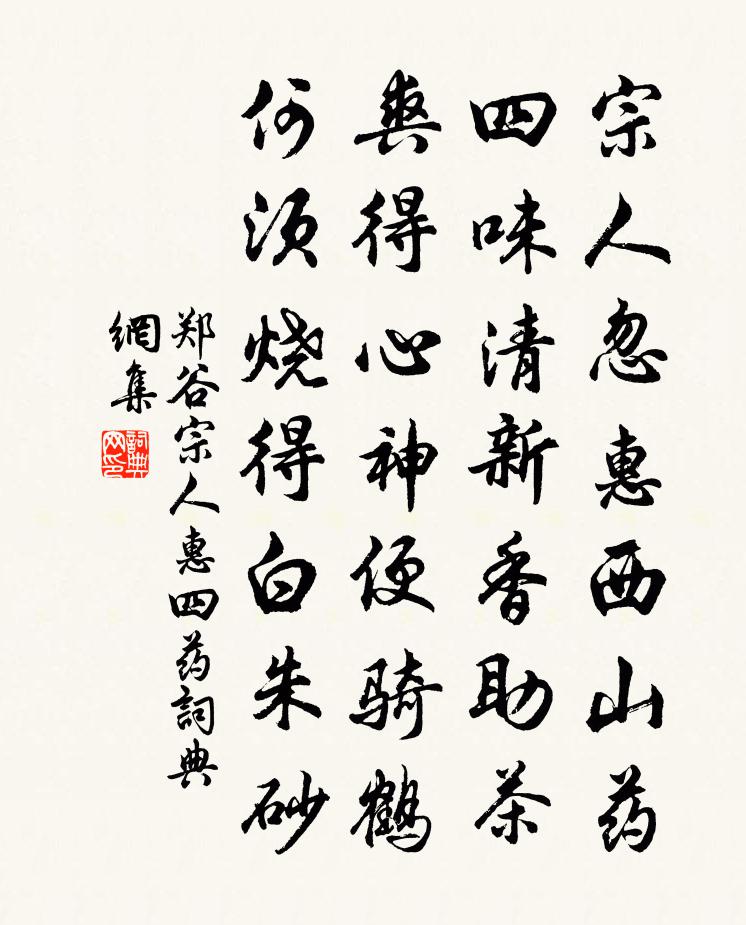 宗人忽惠西山药
四味清新香助茶
爽得心神便骑鹤
何须烧得白朱砂
郑谷宗人惠四药詞典
網集
詞典
网印